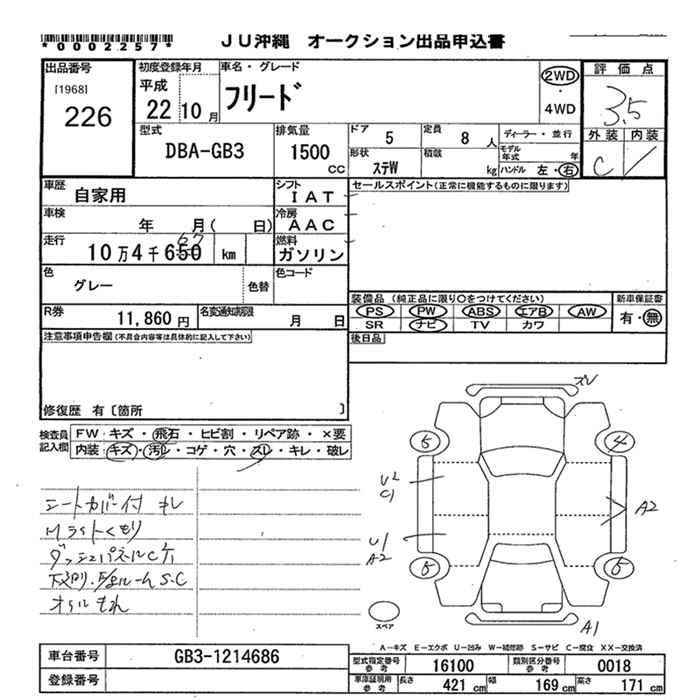 *0002257*
JU沖縄 オークション出品申込書
出品番号 初度登録年月 車名・グレード 評価点
[1968] 平成 フリード 2WD 3.5
226 22 10月 ・ 4WD 外装 内装
C
型式 排気量 ドア 5 定員 8 人 ディーラー・並行
DBA-GB3 1500 cc 形状 ステW 積載 kg モデル年式 年
ハンドル 左・右
車歴 自家用 シフト IAT セールスポイント(正常に機能するものに限ります)
車検 年 月( 日) 冷房 AAC
走行 10万4千650 km 燃料 ガソリン
67
色 グレー 色替 色コード
装備品 (純正品に限り○をつけてください) 新車保証書
R券 11,860円 名変通知期限 月 日 PS PW ABS エアB AW 有・無
SR ナビ TV カワ
注意事項申告欄(不具合内容等は具体的に記入して下さい) 後日品
修復歴 有〔箇所 〕
検査員記入欄 FW・キズ・飛石・ヒビ割・リペア跡・×要
内装・キズ・汚レ・コゲ・穴・スレ・キレ・破レ
スレ
5 4
シートカバー付 キレ
U2
C1
A2
Mライトくもり
U1
A2
ダッシュパネルC
S.C
オイルもれ
スペア
A1
A-キズ E-エクボ U-凹み W-補修跡 S-サビ C-腐食 XX-交換済
車台番号 GB3-1214686 型式指定番号参考 16100 類別区分番号参考 0018
登録番号 車庫証明用参考 長さ 421cm 幅 169cm 高さ 171cm